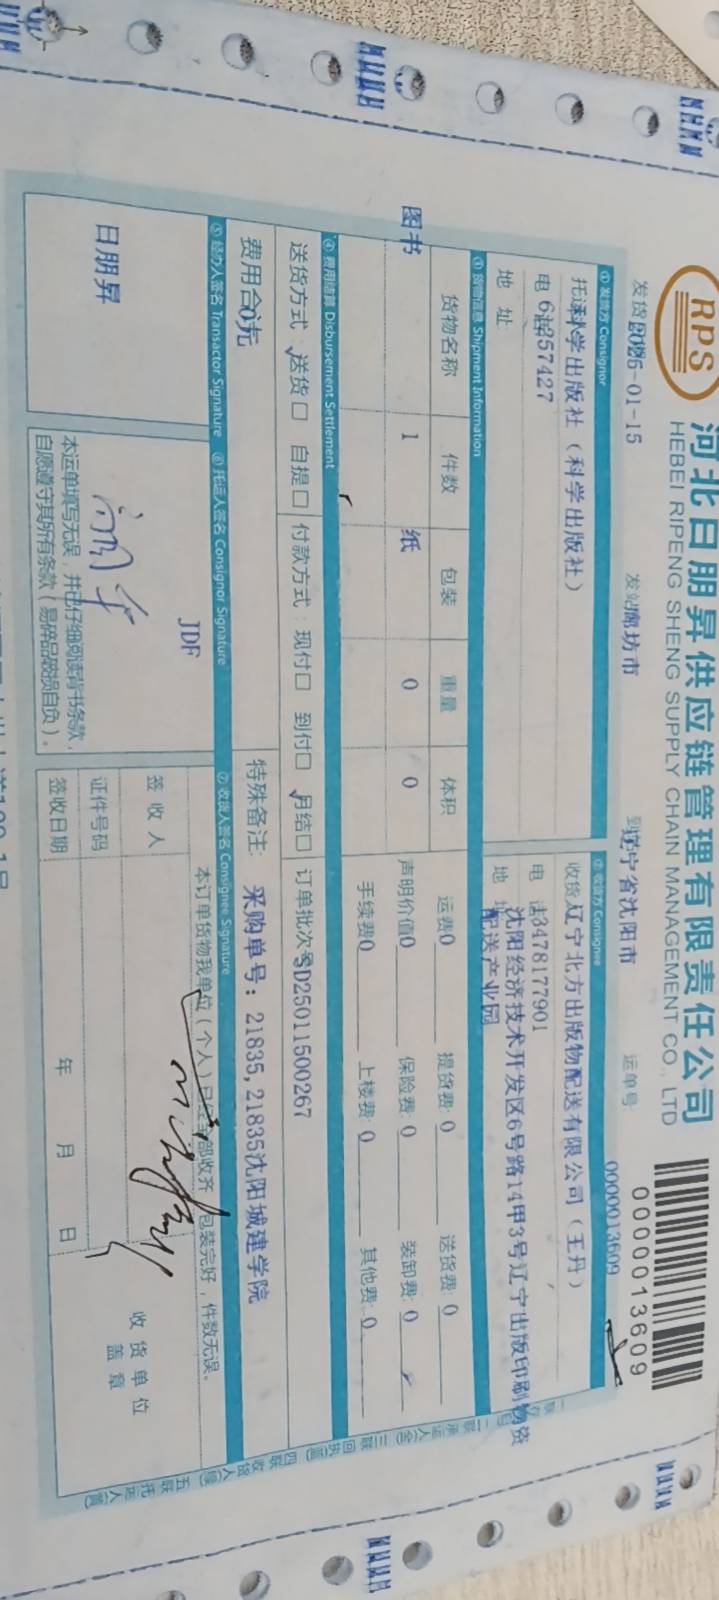 RPS
河北日朋昇供应链管理有限责任公司
HEBEI RIPENG SHENG SUPPLY CHAIN MANAGEMENT CO., LTD
0000013609
发货 2025-01-15
发站 廊坊市
到 辽宁省沈阳市
运单号 0000013609
① 发货方 Consignor
托运 科学出版社（科学出版社）
电
地 址
② 收货方 Consignee
收货 辽宁北方出版物配送有限公司（王丹）
电 话 3478177901
地 址 沈阳经济技术开发区6号路14甲3号辽宁出版印刷物资配送产业园
③ 货物信息 Shipment Information
货物名称 件数 包装 重量 体积
图书 1 纸 0 0
运费0 提货费: 0 送货费: 0
声明价值0 保险费: 0 装卸费: 0
手续费0 上楼费: 0 其他费: 0
④ 费用结算 Disbursement Settlement
送货方式: 送货□ 自提□ 付款方式: 现付□ 到付□ 月结□ 订单批次号SD25011500267
费用合0元
特殊备注: 采购单号: 21835,21835沈阳城建学院
⑤ 经办人签名 Transactor Signature
⑥ 托运人签名 Consignor Signature
⑦ 收货人签名 Consignee Signature
日朋昇
JDF
本运单填写无误，并已仔细阅读背书条款，
自愿遵守其所有条款（易碎品破损自负）。
本订单货物我单位（个人）已经全部收齐，包装完好，件数无误。
签 收 人
证件号码
签收日期 年 月 日
收货单位
盖 章